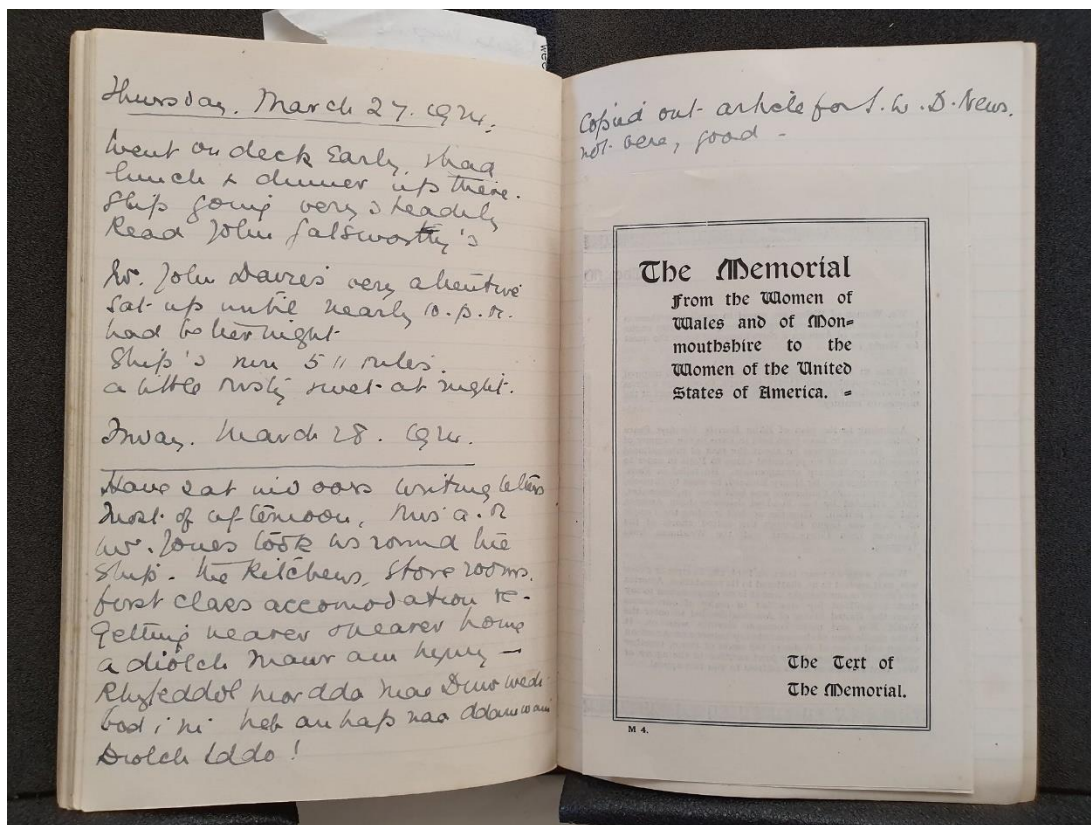 Thursday. March 27. 1924.
Went on deck Early, & had
lunch & dinner up there.
Ship going very steadily
Read John Galsworthy's
Mr. John Davies very attentive
Sat up until nearly 10. p.m.
had better night
Ship's run 511 miles.
a little misty & wet at night.
Friday. March 28. 1924.
Have sat indoors writing letters
most of afternoon, this a.m
Mr. Jones took us round the
Ship. the Kitchens, Store rooms,
first class accomodation &c-
Getting nearer & nearer home
a diolch mawr am hynny –
Rhyfeddol mor dda mae Duw wedi
bod i ni heb anhap na damwain
Diolch Iddo!
Copied out article for S. W. D. News.
not very, good -
The Memorial
From the Women of
Wales and of Mon=
mouthshire to the
Women of the United
States of America. =
The Text of
The Memorial.
M 4.